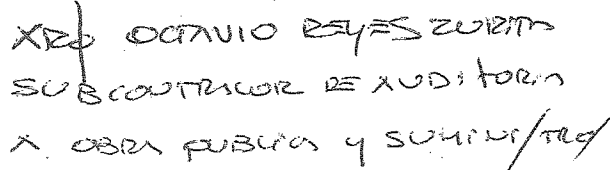 ARQ OCTAVIO REYES ZURITA
SUBCONTRALOR DE AUDITORIA
A OBRA PUBLICA Y SUMINISTRO